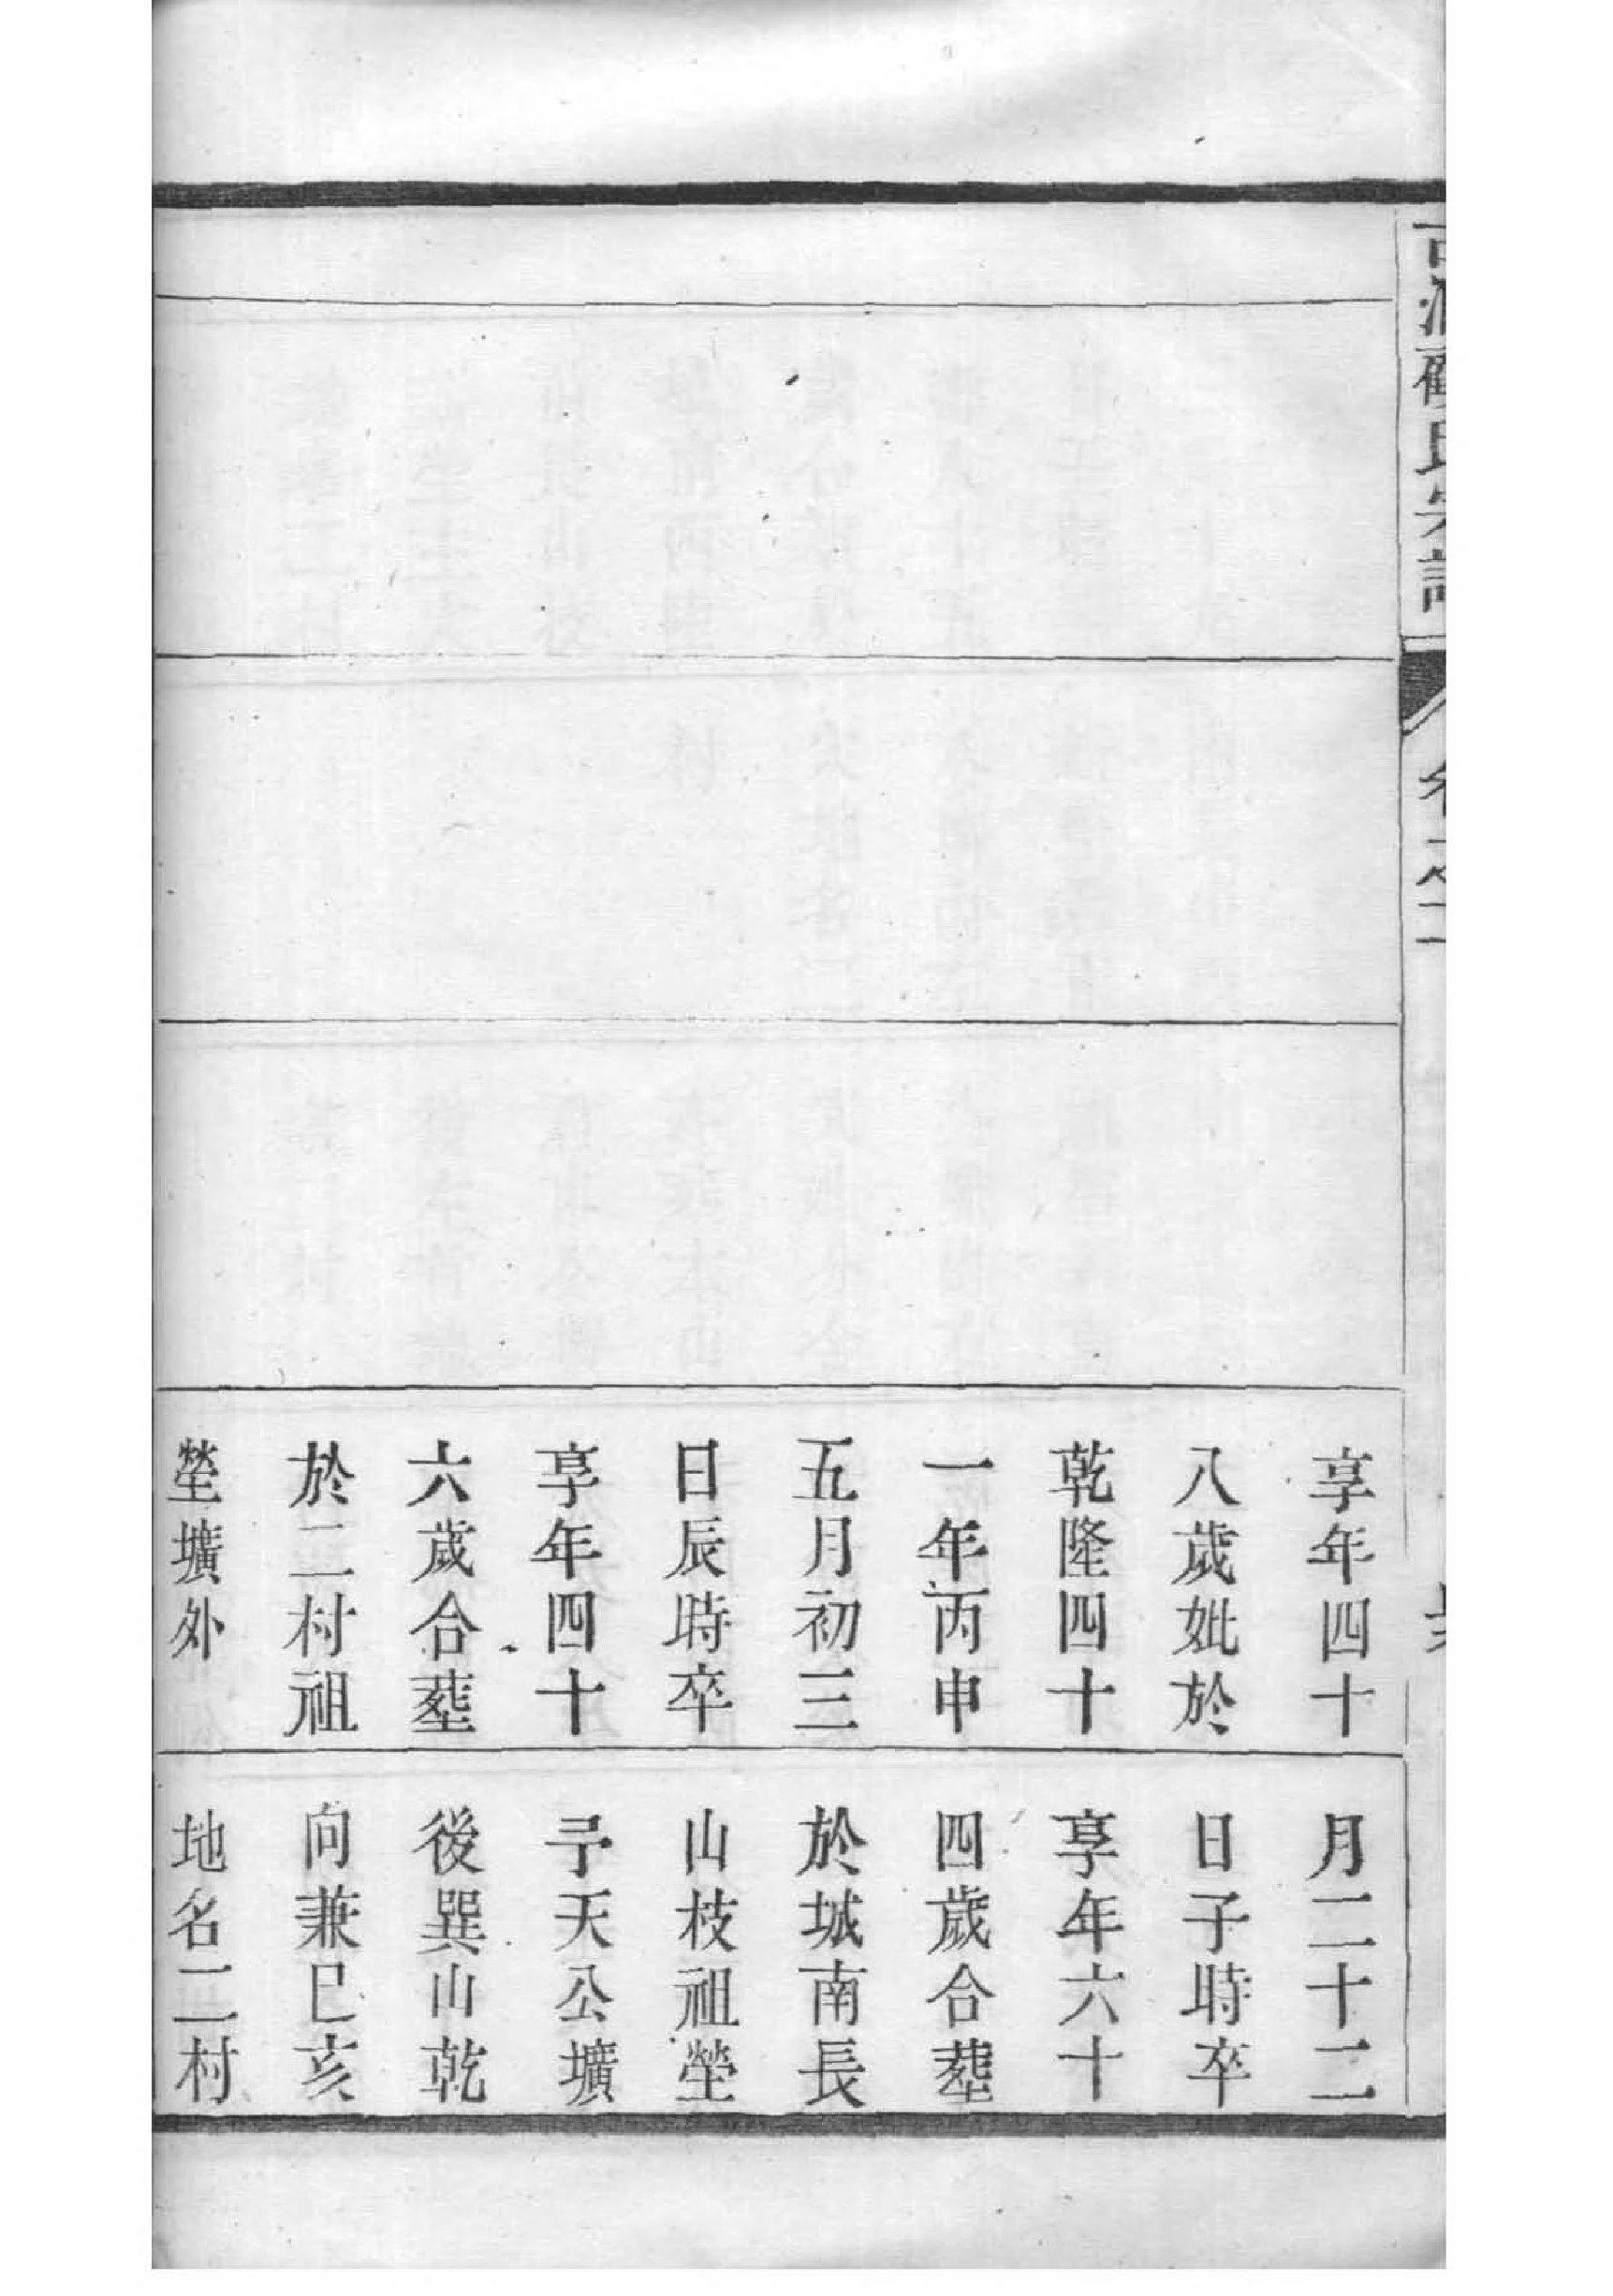 顧氏宗譜
卷之二
享年四十
八歲妣於
乾隆四十
一年丙申
五月初三
日辰時卒
享年四十
六歲合塟
於二村祖
塋壙外
月二十二
日子時卒
享年六十
四歲合塟
於城南長
山枝祖塋
予天公壙
後巽山乾
向兼巳亥
地名二村